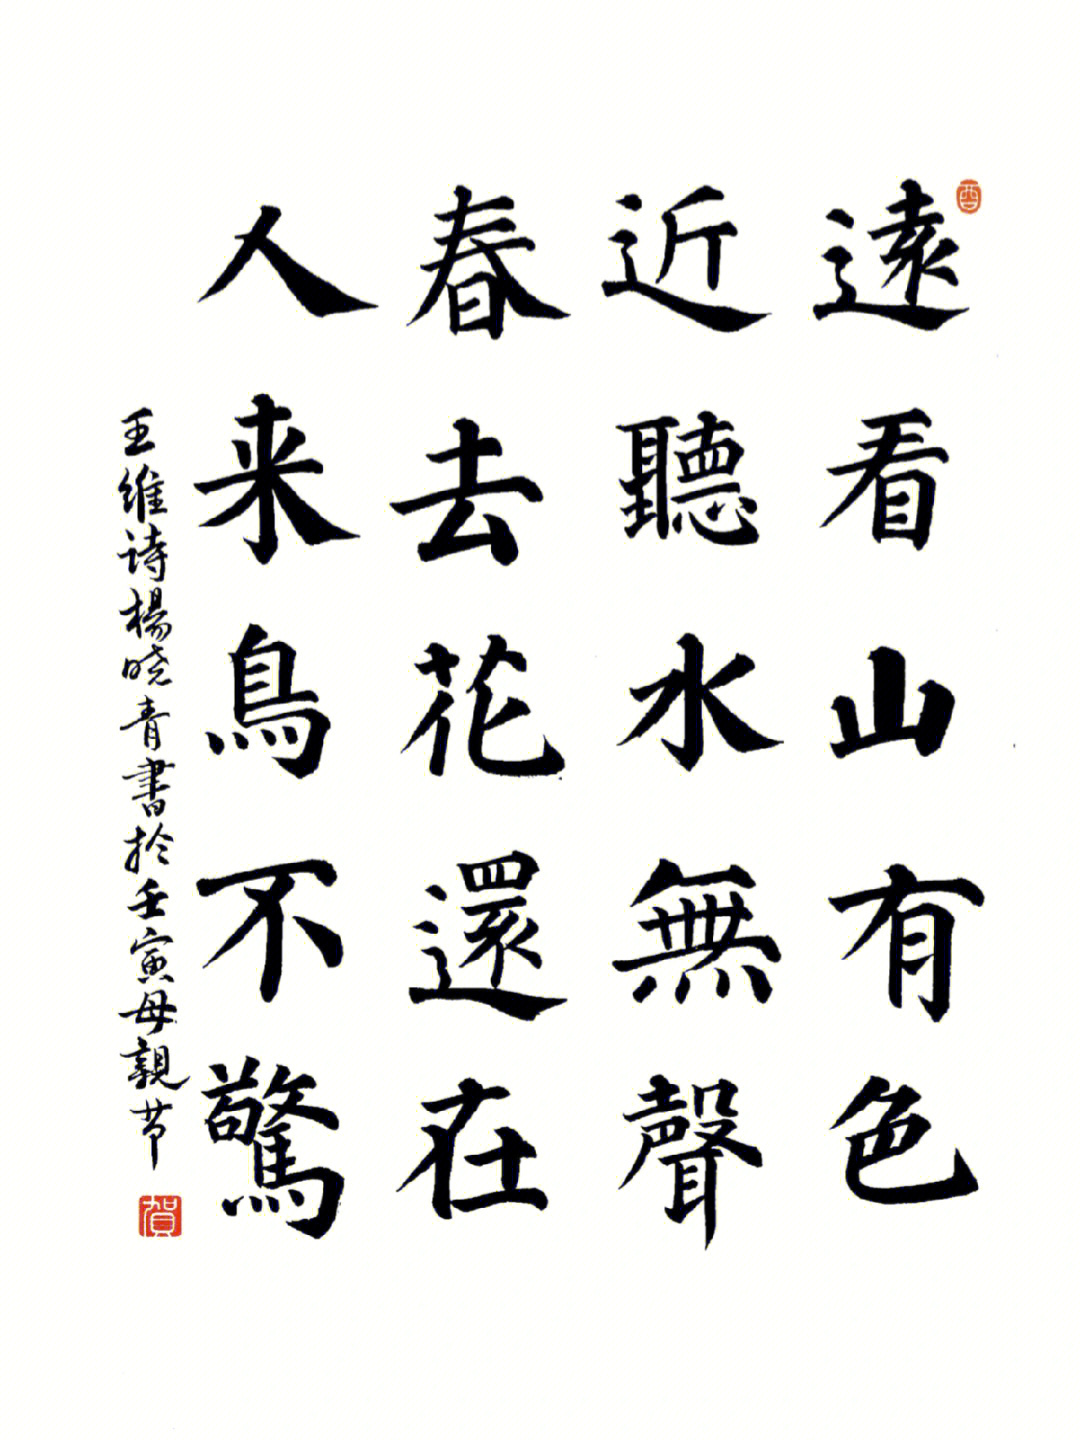 遠看山有色
近聽水無聲
春去花還在
人来鳥不驚
王維诗楊晓青書於壬寅母親节
賀